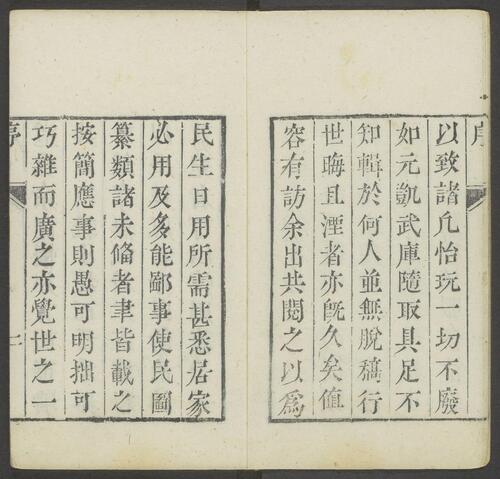 序
以致諸凡怡玩一切不廢
如元凱武庫隨取具足不
知輯於何人並無脫稿行
世晦且湮者亦既久矣值
客有訪余出共閱之以爲
民生日用所需甚悉居家
必用及多能鄙事使民圖
纂類諸未備者聿皆載之
按簡應事則愚可明拙可
巧雜而廣之亦覺世之一
序